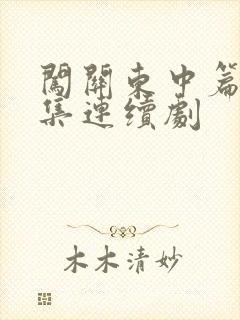 闖關東中篇
集連續劇
木木清妙